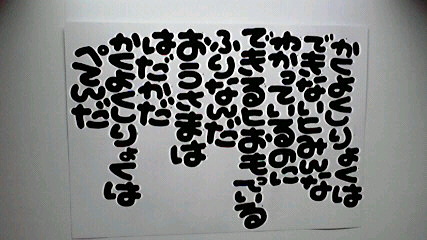 かくよくしりょくは
できないとみんな
わかっているのに
できるとおもっている
ふりなんだ
おうさまは
はだかだ
かくよくしりょくは
ぺてんだ